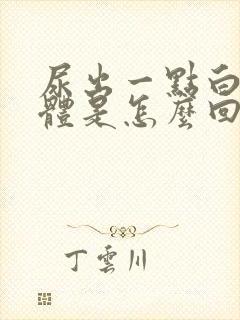 尿出一點白
體是怎麼回
丁雲川